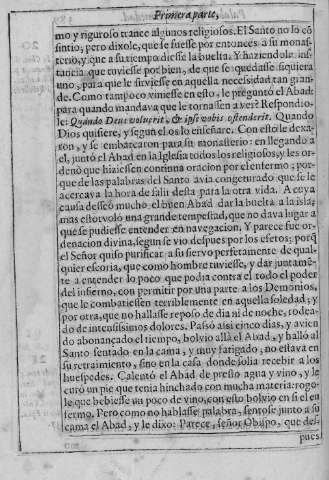 Primera parte,
mo y riguroso trance algunos religiosos. El Santo no lo cõ
sintio, pero dixole, que se fuesse por entonces a su monas-
terio, y que a su tiempo diesse la buelta. Y haziendole ins-
tancia que tuviesse por bien, de que se quedasse siquiera
uno, para que le sirviesse en aquella necessidad tan gran-
de. Como tampoco viniesse en esto, le preguntó el Abad:
para quando mandava que le tornassen a ver? Respondio-
le: Quando Deus voluerit, & ipse vobis ostenderit. Quando
Dios quisiere, y segun el os lo enseñare. Con esto le dexa-
ron, y se embarcaron para su monasterio: en llegando a
el, juntó el Abad en la Iglesia todos los religiosos, y les or-
denò que hiziessen continua oracion por el enfermo; por-
que de las palabras del Santo avia congeturado que se le
acercava la hora de salir desta para la otra vida. A cuya
causa desseó mucho el buen Abad dar la buelta a la isla;
mas estorvolo una grande tempestad, que no dava lugar a
que se pudiesse entender en navegacion. Y parece fue or-
denacion divina, segun se vio despues por los efetos; porq̃
el Señor quiso purificar a su siervo perfetamente de qual-
quier escoria, que como hombre tuviesse, y dar juntamẽ-
te a entender lo poco que podia contra el todo el poder
del infierno, con permitir por una parte a los Demonios,
que le combatiessen terriblemente en aquella soledad; y
por otra, que no hallasse reposo de dia ni de noche, rodea-
do de intensissimos dolores. Passó assi cinco dias, y avien
do abonançado el tiempo, bolvio allà el Abad, y halló al
Santo sentado en la cama, y muy fatigado; no estava en
su retraimiento, sino en la casa donde solia recebir a los
huespedes. Calentó el Abad de presto agua y vino, y le
curó un pie que tenia hinchado con mucha materia: rogo-
le que bebiesse un poco de vino, con esto bolvio en si el en
fermo. Pero como no hablasse palabra, sentose junto a su
cama el Abad, y le dixo: Parece, señor Obispo, que des-
pues